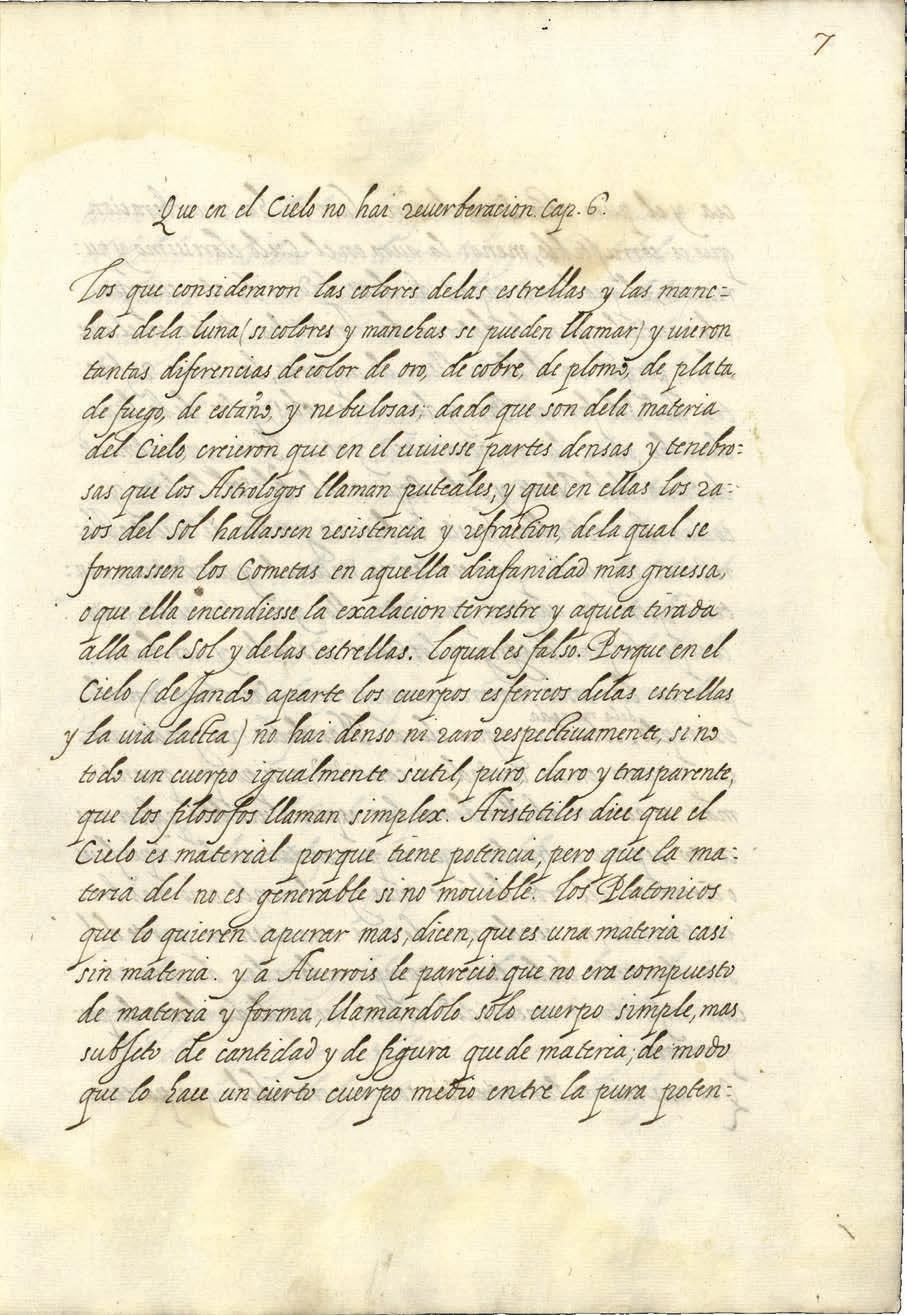 7
Que en el Cielo no hai reuerberacion. Cap. 6.
Los que consideraron las colores delas estrellas y las manc=
has dela luna (si colores y manchas se pueden llamar) y uieron
tantas diferencias decolor de oro, de cobre, de plomo, de plata,
de fuego, de estaño, y nebulosas; dado que son dela materia
del Cielo, creieron que en el uuiesse partes densas y tenebro=
sas que los Astrologos llaman puteales, y que en ellas los ra=
ios del Sol hallassen resistencia y refraction, dela qual se
formassen los Cometas en aquella diafanidad mas gruessa,
o que ella encendiesse la exalacion terrestre y aquea tirada
alla del Sol y delas estrellas. loqual es falso. Porque en el
Cielo (dejando aparte los cuerpos esfericos delas estrellas
y la uia lactea) no hai denso ni raro respectiuamente, sino
todo un cuerpo igualmente sutil, puro, claro y trasparente,
que los filosofos llaman simplex. Aristotiles dice que el
Cielo es material porque tiene potencia, pero que la ma=
teria del no es generable sino mouible. los Platonicos
que lo quieren apurar mas, dicen, que es una materia casi
sin materia. y a Auerrois le parecio que no era compuesto
de materia y forma, llamandolo solo cuerpo simple, mas
subjeto de cantidad y de figura que de materia; de modo
que lo hace un cierto cuerpo medio entre la pura poten=